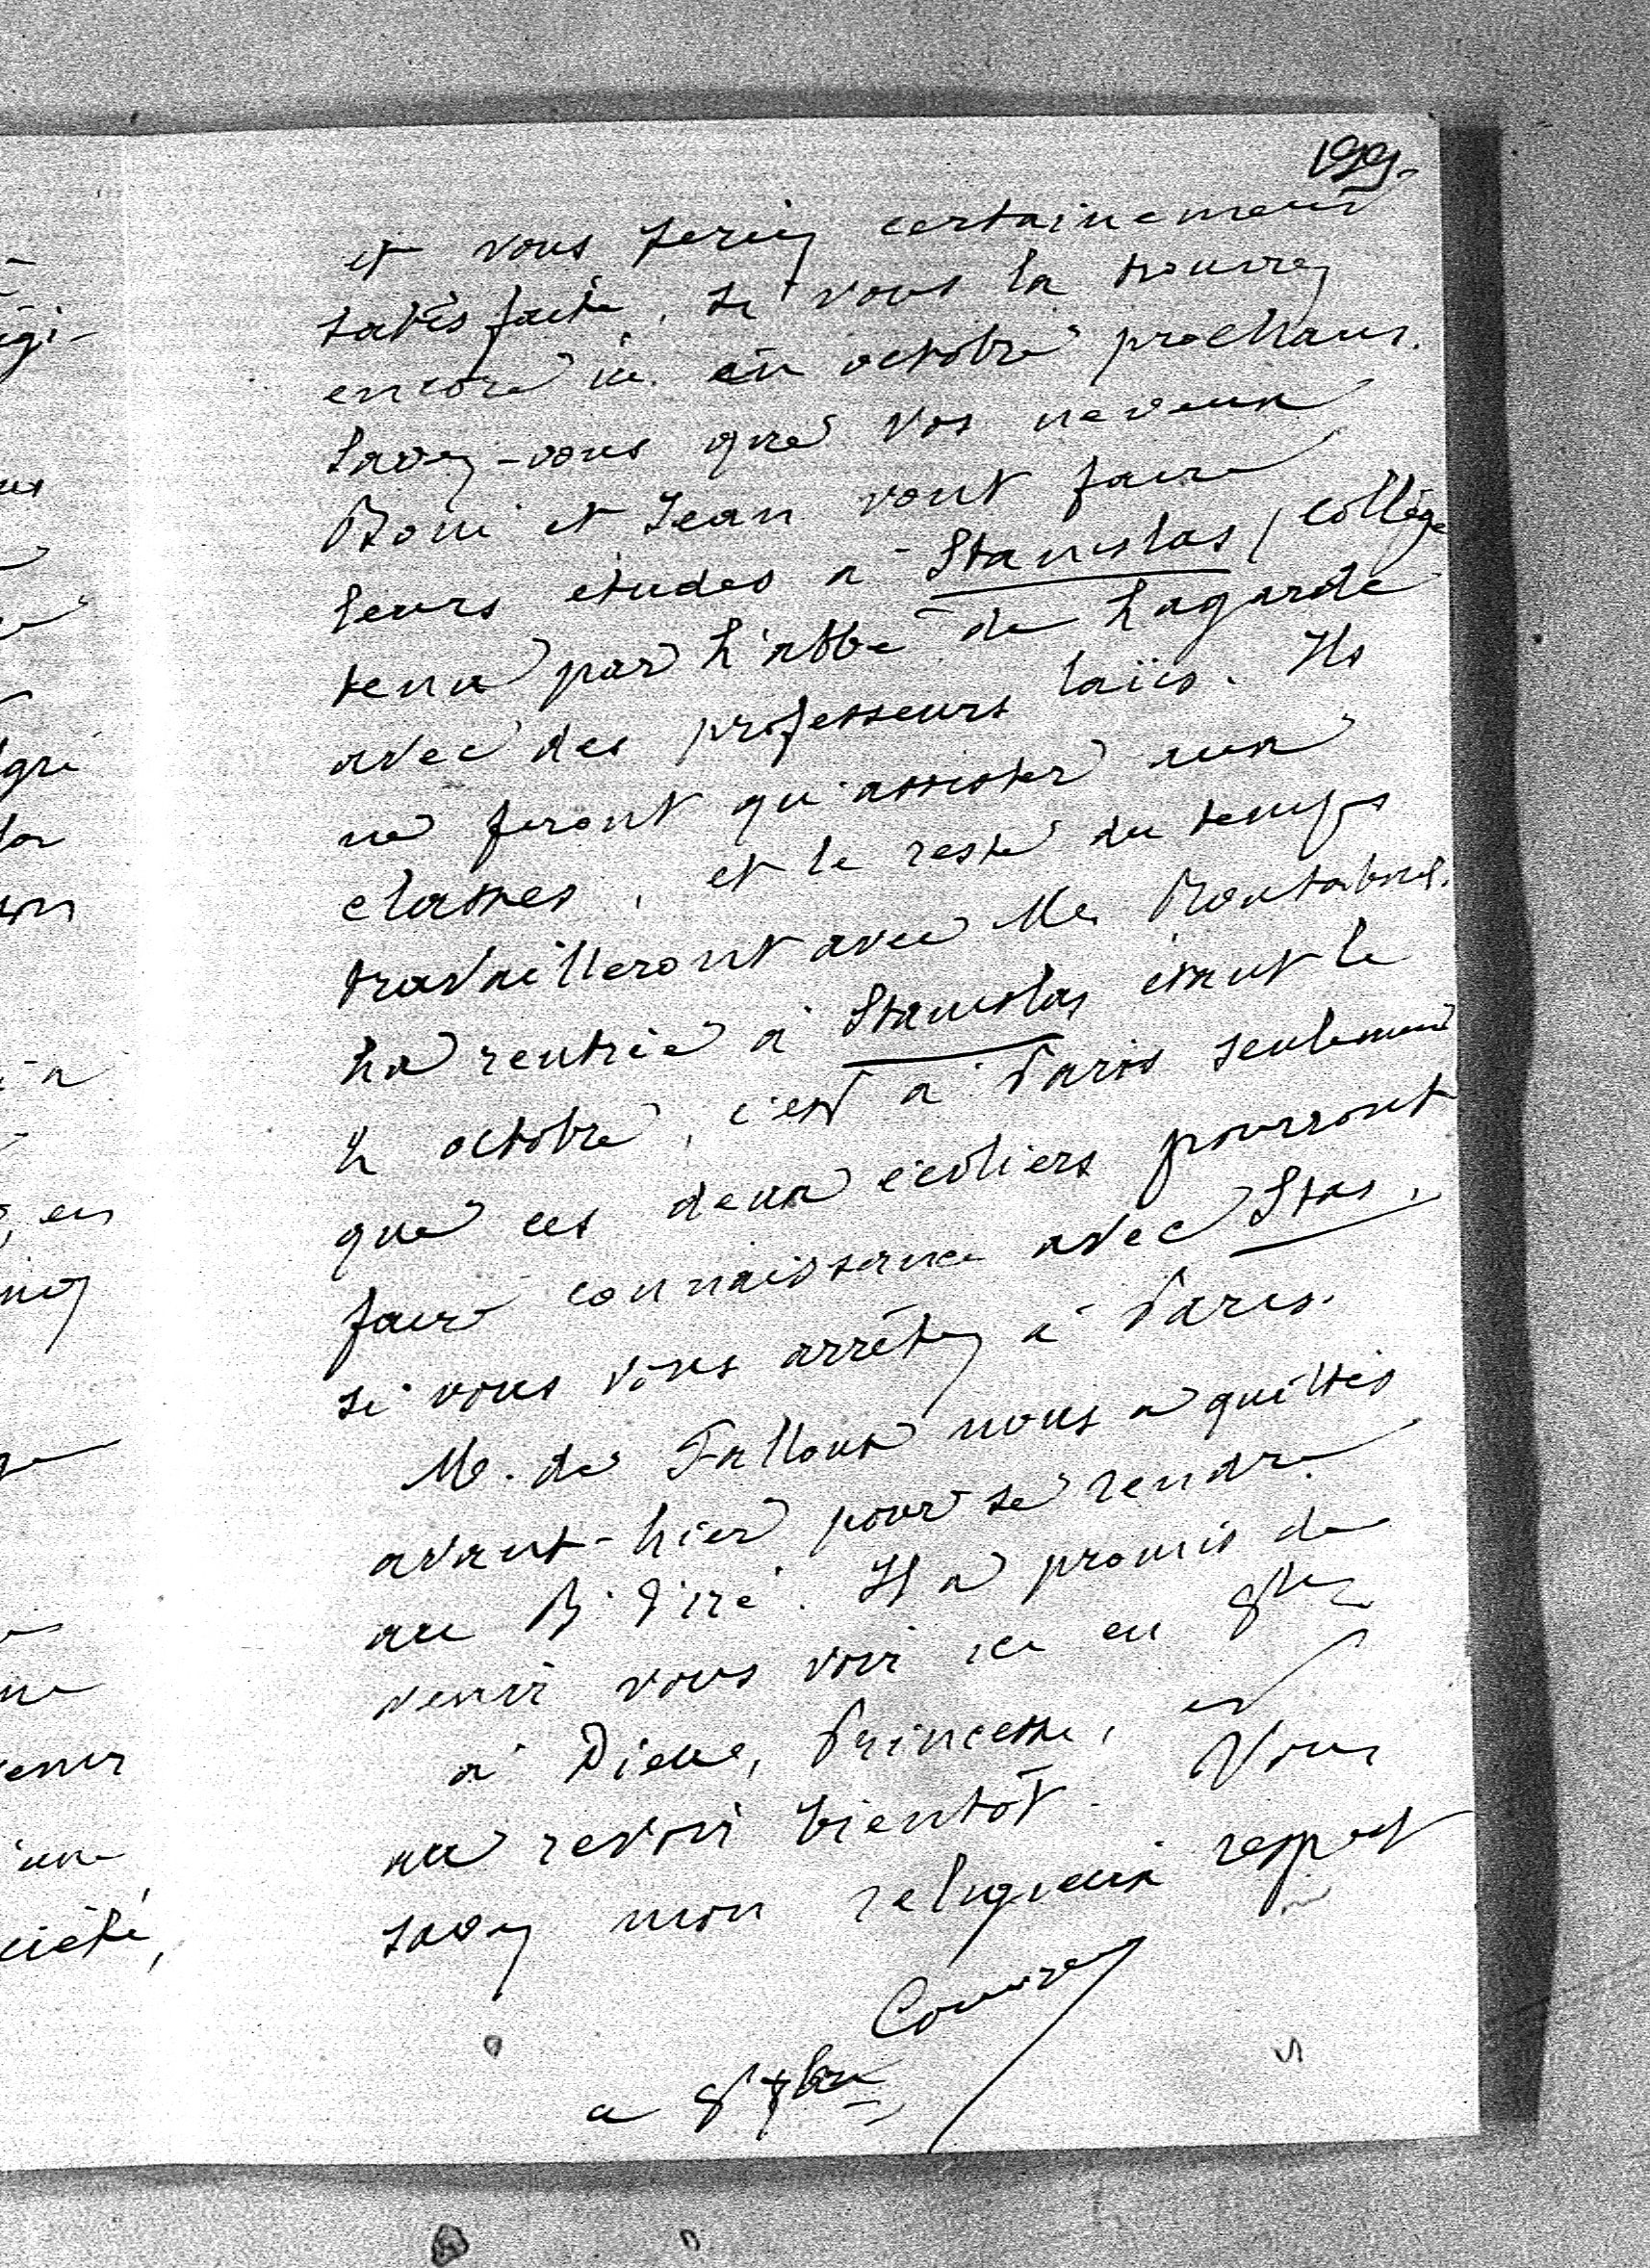 199.
et vous seriez certainement
satisfaite, si vous la trouvez
encore ici en octobre prochain.
Savez-vous que vos neveux
Boni et Jean vont faire
leurs études à Stanislas / collège
tenu par l'abbé de Lagarde
avec des professeurs laïcs. Ils
ne feront qu'assister aux
classes, et le reste du temps
travailleront avec Mr Montabrel.
La rentrée à Stanislas étant le
2 octobre, c'est à Paris seulement
que ces deux écoliers pourront
faire connaissance avec Stas,
si vous vous arrêtez à Paris.
M. de Falloux nous a quittés
avant-hier pour se rendre
au B. d'iré. Il a promis de
venir vous voir ici en 8bre
à Dieu, Princesse, et
au revoir bientôt. Vous
savez mon religieux respect
a 8 7bre
gi-
gré
en
venir
une
ciété,